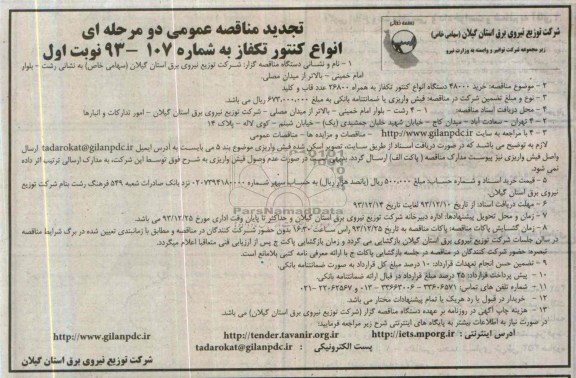 شرکت توزیع نیروی برق استان گیلان (سهامی خاص)
زیر مجموعه شرکت توانیر و وابسته به وزارت نیرو
تجدید مناقصه عمومی دو مرحله ای
انواع کنتور تکفاز به شماره ۱۰۷ -۹۳ نوبت اول
۱ - نام و نشانی دستگاه مناقصه گزار: شرکت توزیع نیروی برق استان گیلان (سهامی خاص) به نشانی رشت - بلوار
امام خمینی - بالاتر از میدان مصلی.
۲ - موضوع مناقصه: خرید ۴۸۰۰۰ دستگاه انواع کنتور تکفاز به همراه ۲۶۸۰۰ عدد قاب و کلید
۳ - نوع و مبلغ تضمین شرکت در مناقصه: فیش واریزی یا ضمانتنامه بانکی به مبلغ ۶۷۳،۰۰۰،۰۰۰ ریال می باشد.
۴ - محل دریافت اسناد مناقصه: ۱ - ۴ رشت - بلوار امام خمینی - بالاتر از میدان مصلی - شرکت توزیع نیروی برق استان گیلان - امور تدارکات و انبارها
۲ - ۴ تهران - سعادت آباد - میدان کاج - خیابان شهید خلیان جمشیدی (یک) - خیابان شبنم - کوی لاله - پلاک ۱۴
۳ - ۴ با مراجعه به سایت http://www.gilanpdc.ir - مناقصات و مزایده ها - مناقصات عمومی
لازم به توضیح می باشند که در صورت دریافت اسناد از طریق سایت، تصویر اسکن شده فیش واریزی موضوع بند ۵ می بایست به آدرس ایمیل tadarokat@gilanpdc.ir ارسال
واصل فیش واریزی نیز پیوست مدارک مناقصه (پاکت الف) ارسال گردد. بدیهی است در صورت عدم وصول فیش واریزی به شرح فوق توسط این شرکت، به مدارک ارسالی ترتیب اثر داده
نمی شود.
۵ - قیمت خرید اسناد و شماره حساب: مبلغ ۵۰۰،۰۰۰ ریال (پانصد هزار ریال) به حساب سپهر شماره ۰۲۰۷۳۹۴۱۸۰۰۰ نزد بانک صادرات شعبه ۵۴۹ فرهنگ رشت بنام شرکت توزیع
نیروی برق استان گیلان.
۶ - مهلت دریافت اسناد: از تاریخ ۹۳/۱۲/۱۰ لغایت تاریخ ۹۳/۱۲/۱۴
۷ - زمان و محل تحویل پیشنهادها: اداره دبیرخانه شرکت توزیع نیروی برق استان گیلان و حداکثر تا پایان وقت اداری مورخ ۹۳/۱۲/۲۵ می باشد.
۸ - زمان گشایش پاکات مناقصه: پاکات مناقصه به تاریخ ۹۳/۱۲/۲۵ راس ساعت ۱۶:۳۰ بدون حضور شرکت کنندگان در مناقصه و مطابق با زمانبندی تعیین شده در برگ شرایط مناقصه
در سالن جلسات شرکت توزیع نیروی برق استان گیلان بازگشایی می گردد و زمان بازگشایی پاکت ج پس از ارزیابی فنی متعاقبا اعلام میگردد.
تبصره: حضور شرکت کنندگان در مناقصه در جلسه بازگشایی پاکات ج با ارائه معرفی نامه کتبی بلامانع است.
۹ - تضمین حسن انجام تعهدات قرارداد: ۱۰ درصد مبلغ کل قرارداد به صورت ضمانتنامه بانکی.
۱۰ - پیش پرداخت قرارداد: ۲۵ درصد مبلغ قرارداد در قبال ارائه ضمانتنامه بانکی.
۱۱ - شماره تلفن های تماس: ۳۳۶۰۶۵۷۱ - ۳۳۶۶۳۰۰۶ -۰۱۳ و ۲۲۰۶۲۵۶۷ -۰۲۱
۱۲ - خریدار در قبول یا رد هریک یا تمام پیشنهادات مختار می باشد.
۱۳ - هزینه چاپ آگهی در روزنامه بر عهده دستگاه مناقصه گزار (شرکت توزیع نیروی برق استان گیلان) می باشد.
در صورت نیاز به اطلاعات بیشتر به پایگاه های اینترنتی شرح زیر مراجعه فرمایید:
آدرس اینترنتی: http://iets.mporg.ir http://tender.tavanir.org.ir http://www.gilanpdc.ir
پست الکترونیکی : tadarokat@gilanpdc.ir
شرکت توزیع نیروی برق استان گیلان
ParsNamadData